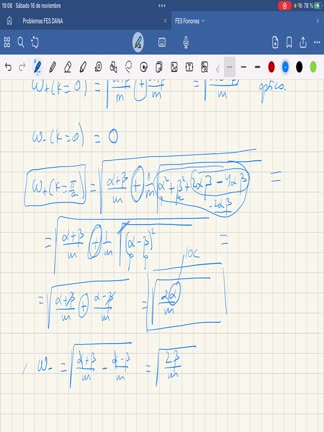 19:08 Sábado 16 de noviembre 78 %
Problemas FES DANA FES Fonones
ω₊(k=0) = √(α+β/m + α+β/m) = óptico.
ω₋(k=0) = 0
ω₊(k=π/2) = √(α+β/m + 1/m √(α²+β²+2αβ-4αβ)) =
-2αβ
= √(α+β/m + 1/m √(α-β)²) =
loc
= √(α+β/m + α-β/m) = √(2α/m)
ω₋ = √(α+β/m - α-β/m) = √(2β/m)